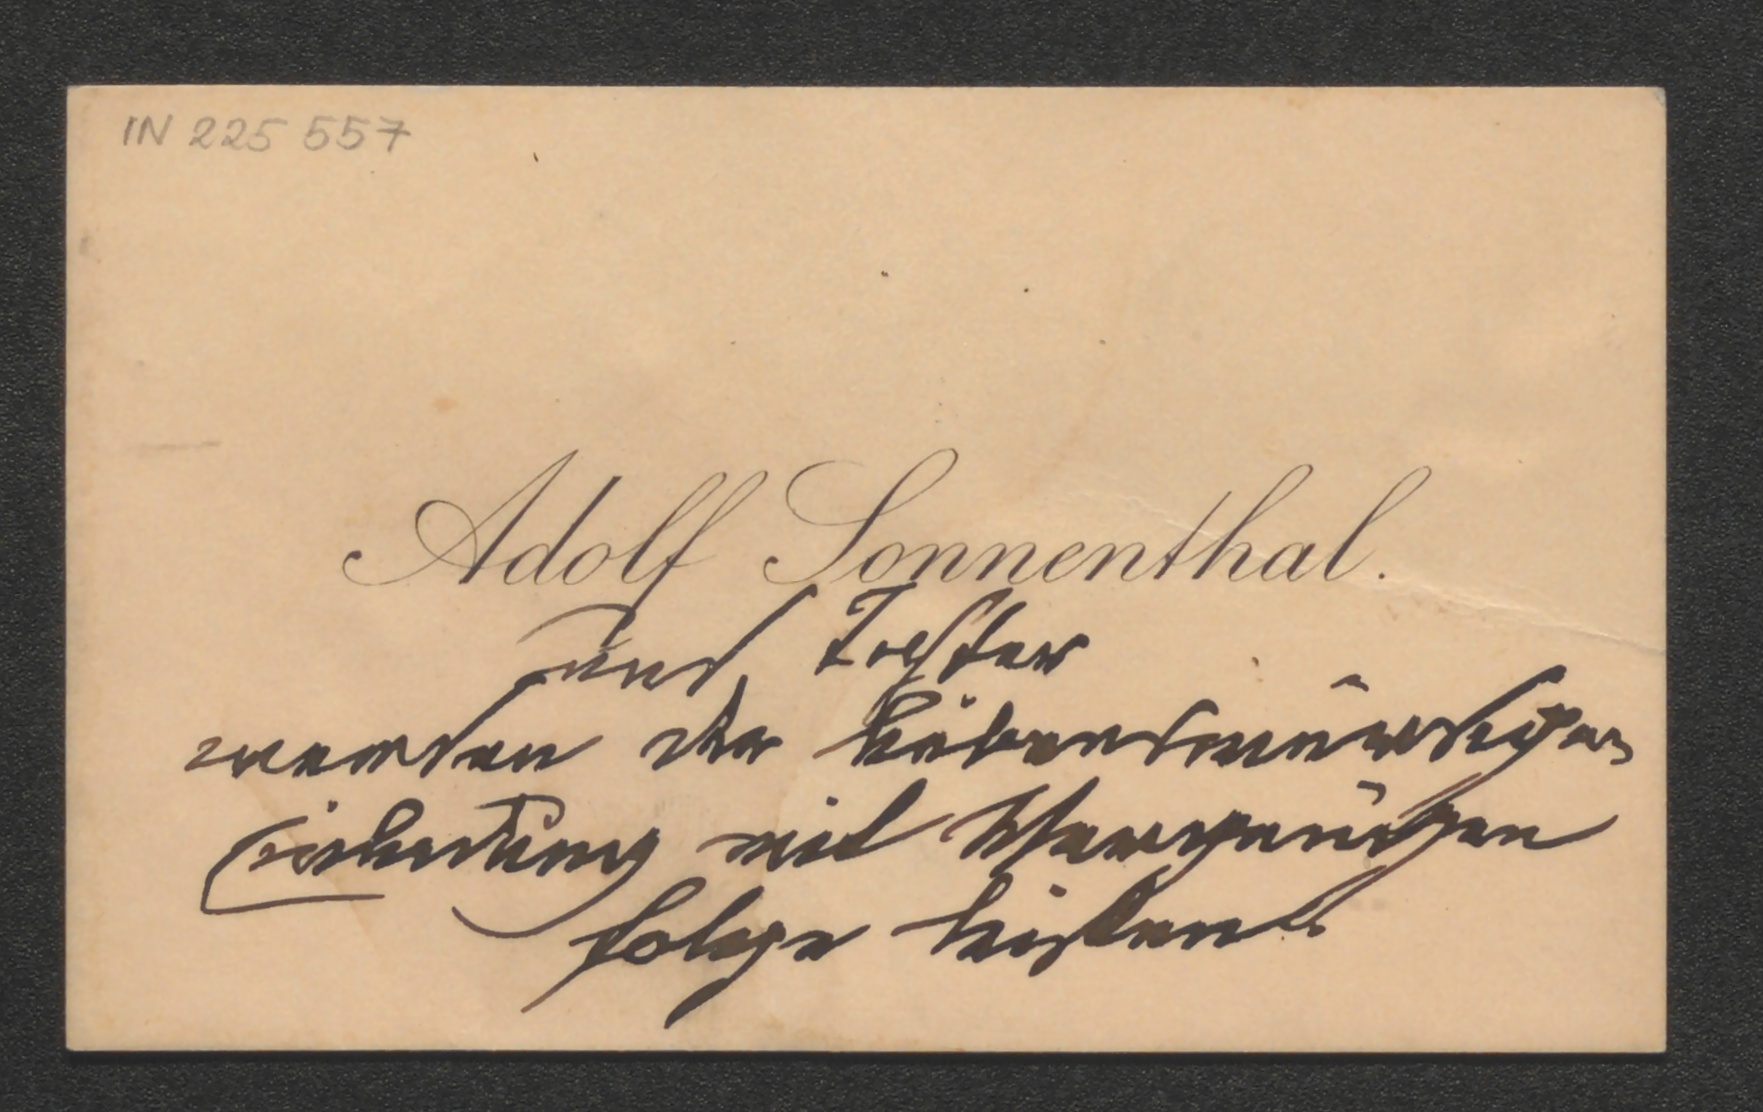 IN 225 557
Adolf Sonnenthal.
und Tochter
werden der liebenswürdigen
Einladung mit Vergnügen
folge leisten.